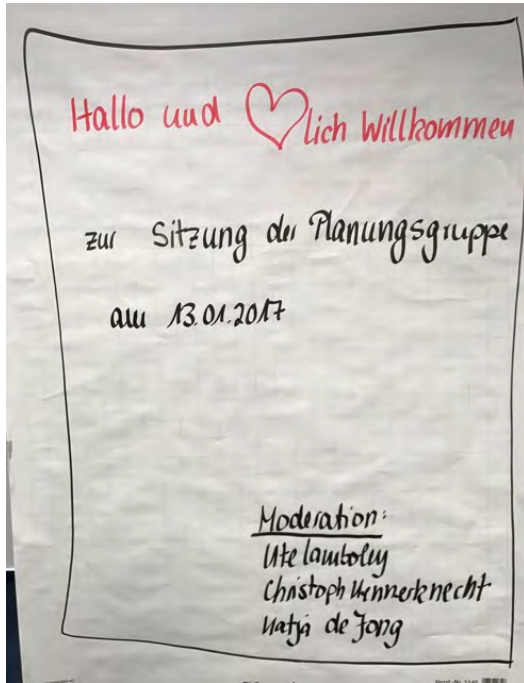 Hallo und ♡lich Willkommen
zur Sitzung der Planungsgruppe
am 13.01.2017
Moderation:
Ute
Christoph Wennerknecht
Katja de Jong